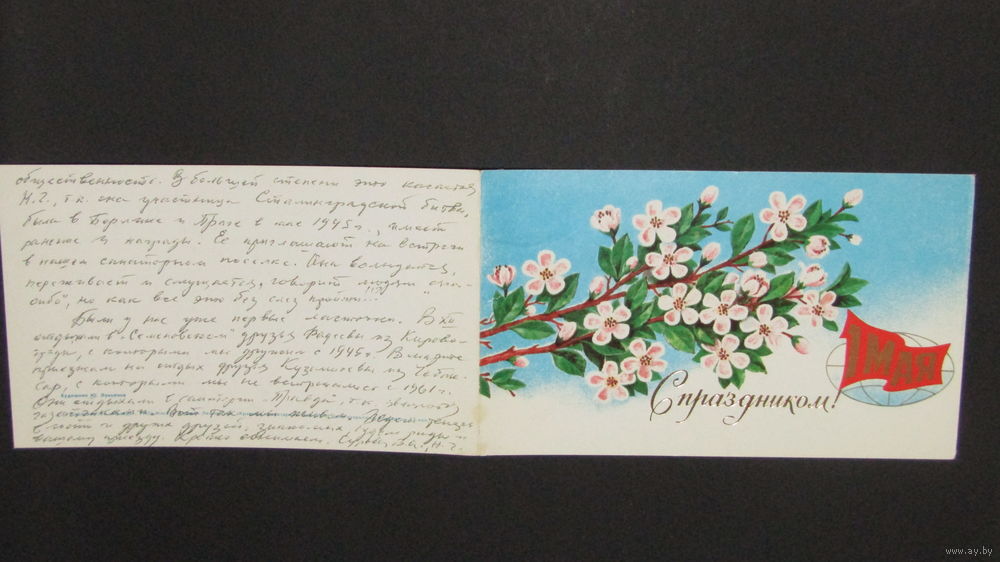 общественность. В большей степени это касается
Н.Г., т.к. она участница Сталинградской битвы,
была в Берлине и Праге в мае 1945 г., имеет
ранение и награды. Ее приглашают на встречи
в нашем санаторном поселке. Она волнуется,
переживает и смущается, говорит людям "спа-
сибо", но как все это без слез пройти...?
Были у нас уже первые ласточки. В XII
отдыхали в "Семеновском" друзья Фадеевы из Кирово-
града, с которыми мы дружим с 1945 г. В
приезжали на отдых друзья Кузьмичевы из
с которыми мы не встречались с 1961 г.
Художник Ю. Лукьянов
Они отдыхали в санатории "Правда"
Вот так мы живем.
и других друзей, знакомых, будем рады и
вашему приезду. Крепко обнимаем. Н.Г.
С праздником!
1 МАЯ
www.ay.by